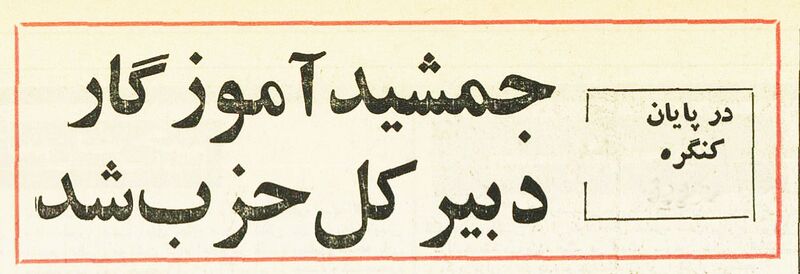 در پایان
کنگره
جمشید آموزگار
دبیر کل حزب شد